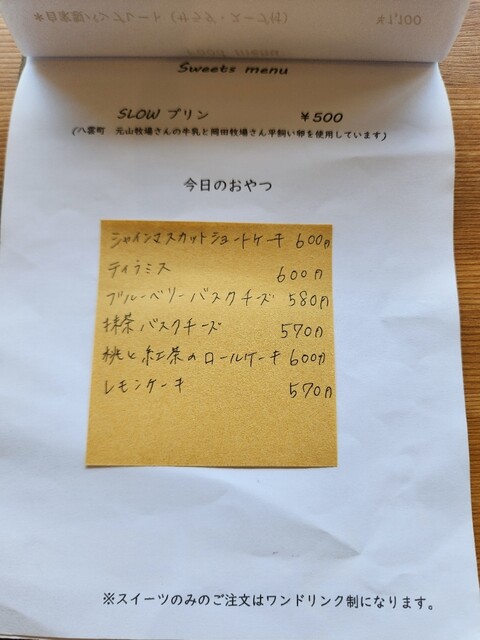 ¥1,100
Sweets menu
SLOW プリン ¥500
(八雲町 元山牧場さんの牛乳と岡田牧場さん平飼い卵を使用しています)
今日のおやつ
シャインマスカットショートケーキ 600円
ティラミス 600円
ブルーベリーバスクチーズ 580円
抹茶バスクチーズ 570円
桃と紅茶のロールケーキ 600円
レモンケーキ 570円
※スイーツのみのご注文はワンドリンク制になります。